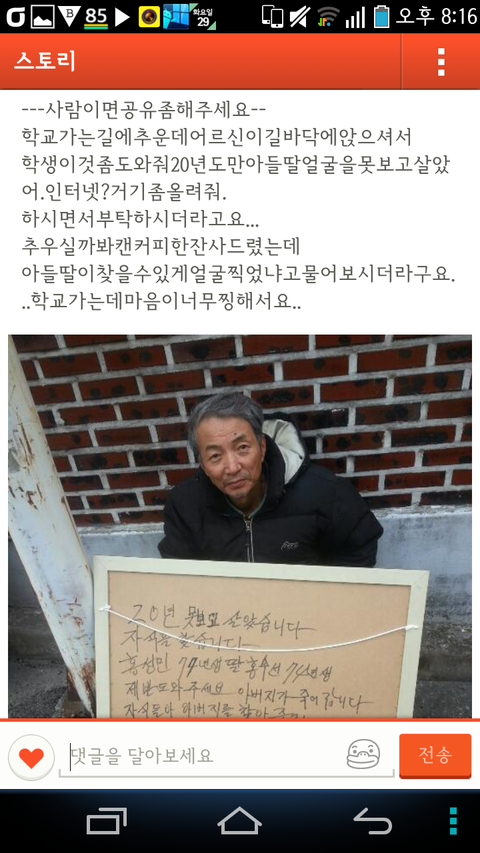 85
화요일
29
오후 8:16
스토리
---사람이면공유좀해주세요--
학교가는길에추운데어르신이길바닥에앉으셔서
학생이것좀도와줘20년도만아들딸얼굴을못보고살았
어.인터넷?거기좀올려줘.
하시면서부탁하시더라고요...
추우실까봐캔커피한잔사드렸는데
아들딸이찾을수있게얼굴찍었냐고물어보시더라구요.
..학교가는데마음이너무찡해서요..
20년 못보고 살았습니다
자식을 찾습니다
홍선민 77년생 딸 홍수선 74년생
제발 도와주세요 아버지가 죽어갑니다
댓글을 달아보세요
전송